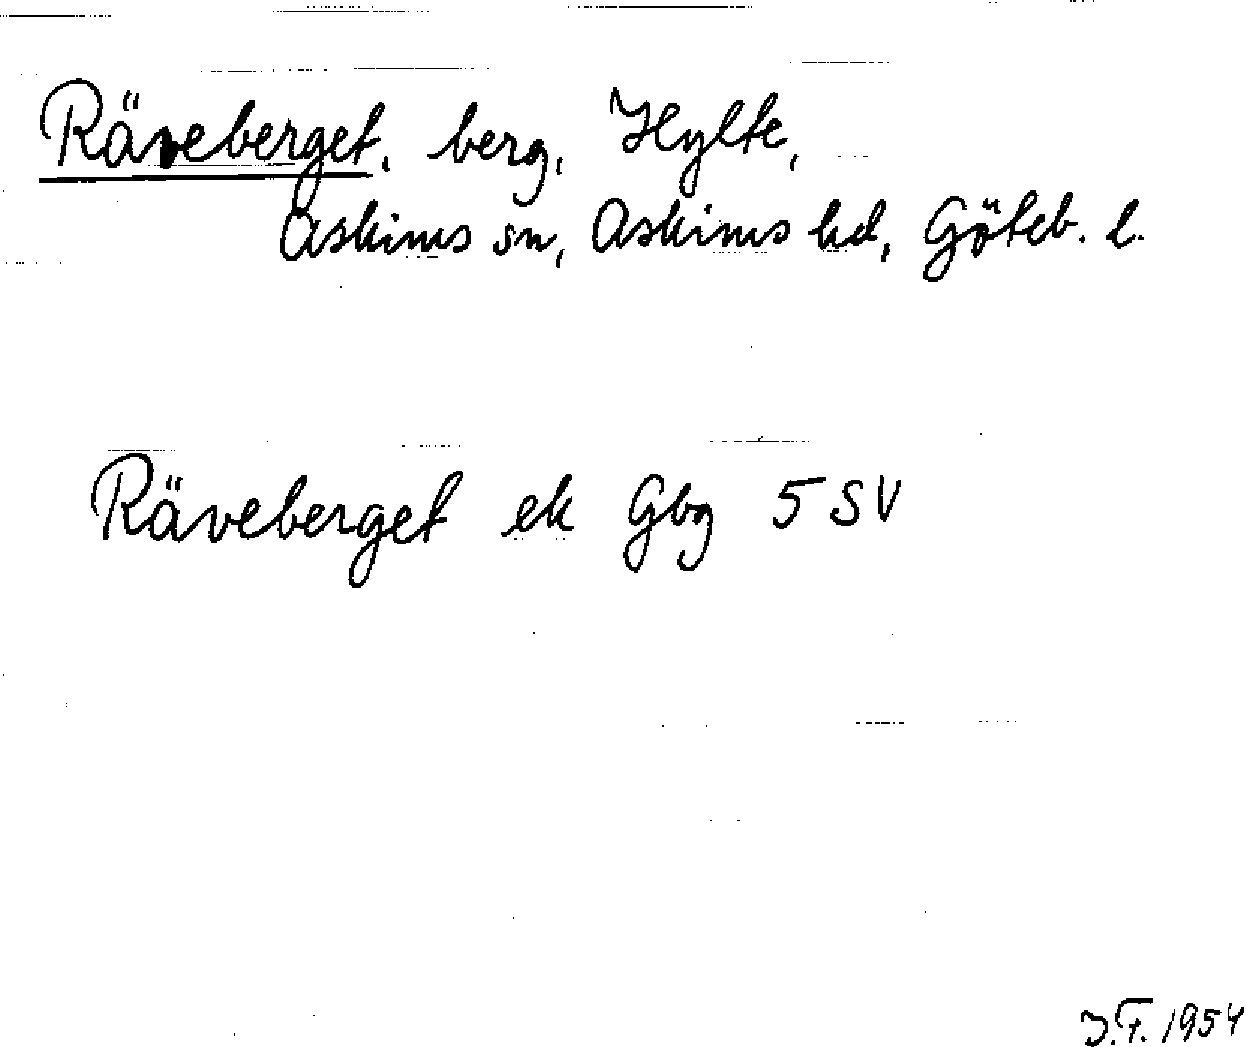 Räveberget, berg, Hylte,
Askims sn, Askims hd, Göteb. l.
Räveberget ek Gbg 5 SV
J.F. 1954